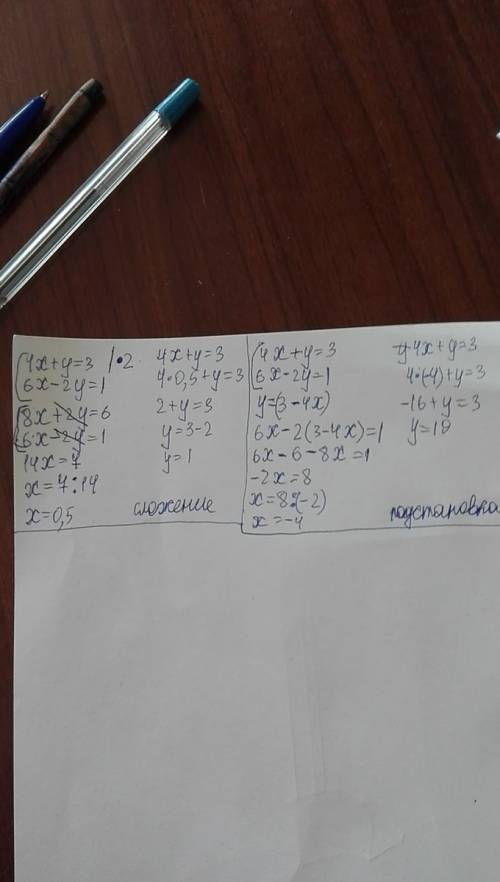 4x+y=3 | •2
6x-2y=1
8x+2y=6
6x-2y=1
14x=7
x=7:14
x=0,5
4x+y=3
4•0,5+y=3
2+y=3
y=3-2
y=1
сложение
4x+y=3
6x-2y=1
y=(3-4x)
6x-2(3-4x)=1
6x-6-8x=1
-2x=8
x=8:(-2)
x=-4
4x+y=3
4•(-4)+y=3
-16+y=3
y=19
подстановка